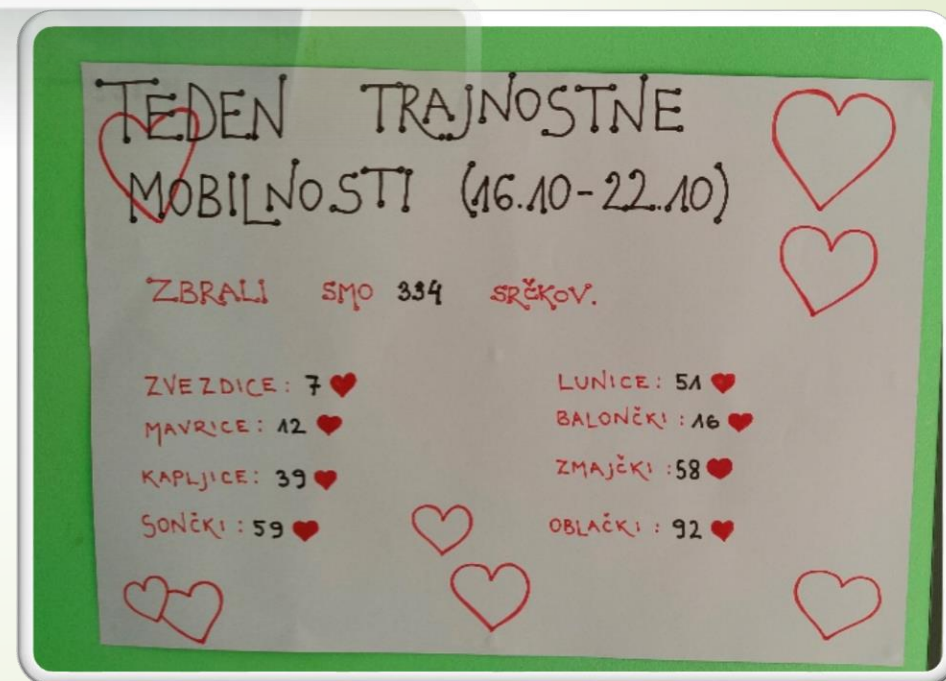 TEDEN TRAJNOSTNE
MOBILNOSTI (16.10-22.10)
ZBRALI SMO 334 SRČKOV.
ZVEZDICE: 7
MAVRICE: 12
KAPLJICE: 39
SONČKI: 59
LUNICE: 51
BALONČKI: 16
ZMAJČKI: 58
OBLAČKI: 92